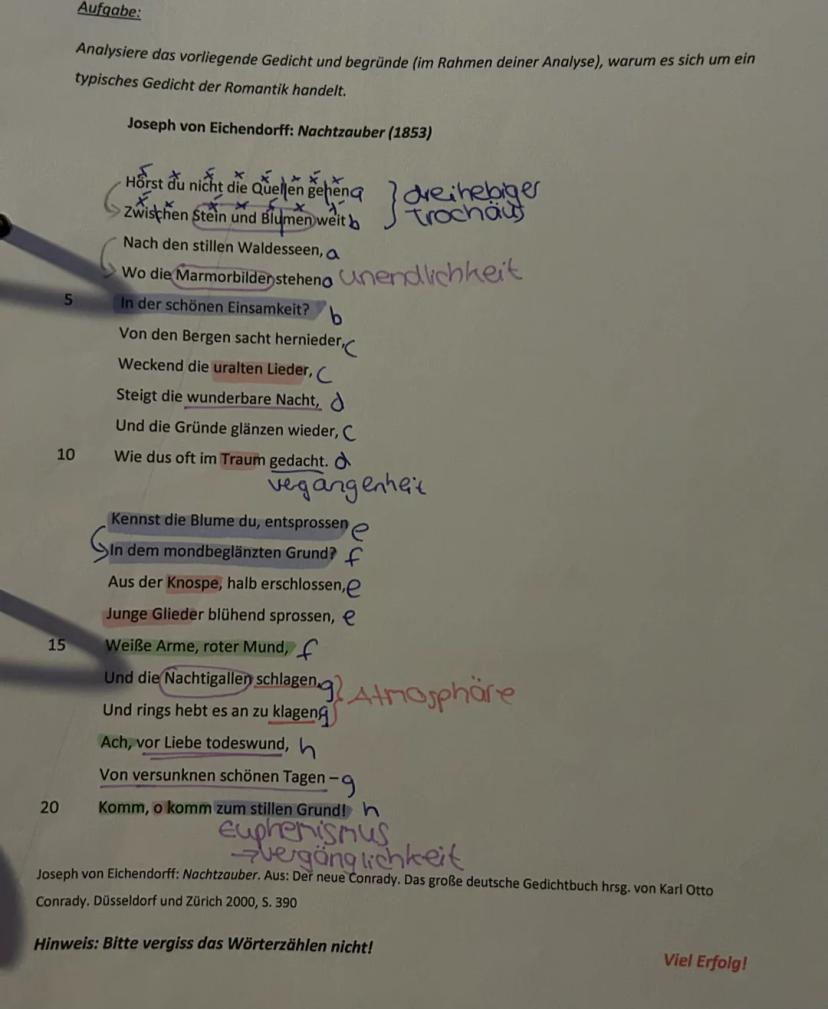 Aufgabe:
Analysiere das vorliegende Gedicht und begründe (im Rahmen deiner Analyse), warum es sich um ein
typisches Gedicht der Romantik handelt.
Joseph von Eichendorff: Nachtzauber (1853)
Hörst du nicht die Quellen gehen a } dreihebiger
Zwischen Stein und Blumen weit b } trochäus
Nach den stillen Waldesseen, a
Wo die Marmorbilder stehen a Unendlichkeit
5 In der schönen Einsamkeit? b
Von den Bergen sacht hernieder, c
Weckend die uralten Lieder, c
Steigt die wunderbare Nacht, d
Und die Gründe glänzen wieder, c
10 Wie dus oft im Traum gedacht. d
vergangenheit
Kennst die Blume du, entsprossen e
In dem mondbeglänzten Grund? f
Aus der Knospe, halb erschlossen, e
Junge Glieder blühend sprossen, e
15 Weiße Arme, roter Mund, f
Und die Nachtigallen schlagen, g } Atmosphäre
Und rings hebt es an zu klagen g
Ach, vor Liebe todeswund, h
Von versunknen schönen Tagen – g
20 Komm, o komm zum stillen Grund! h
Euphemismus
→ vergänglichkeit
Joseph von Eichendorff: Nachtzauber. Aus: Der neue Conrady. Das große deutsche Gedichtbuch hrsg. von Karl Otto
Conrady. Düsseldorf und Zürich 2000, S. 390
Hinweis: Bitte vergiss das Wörterzählen nicht!
Viel Erfolg!